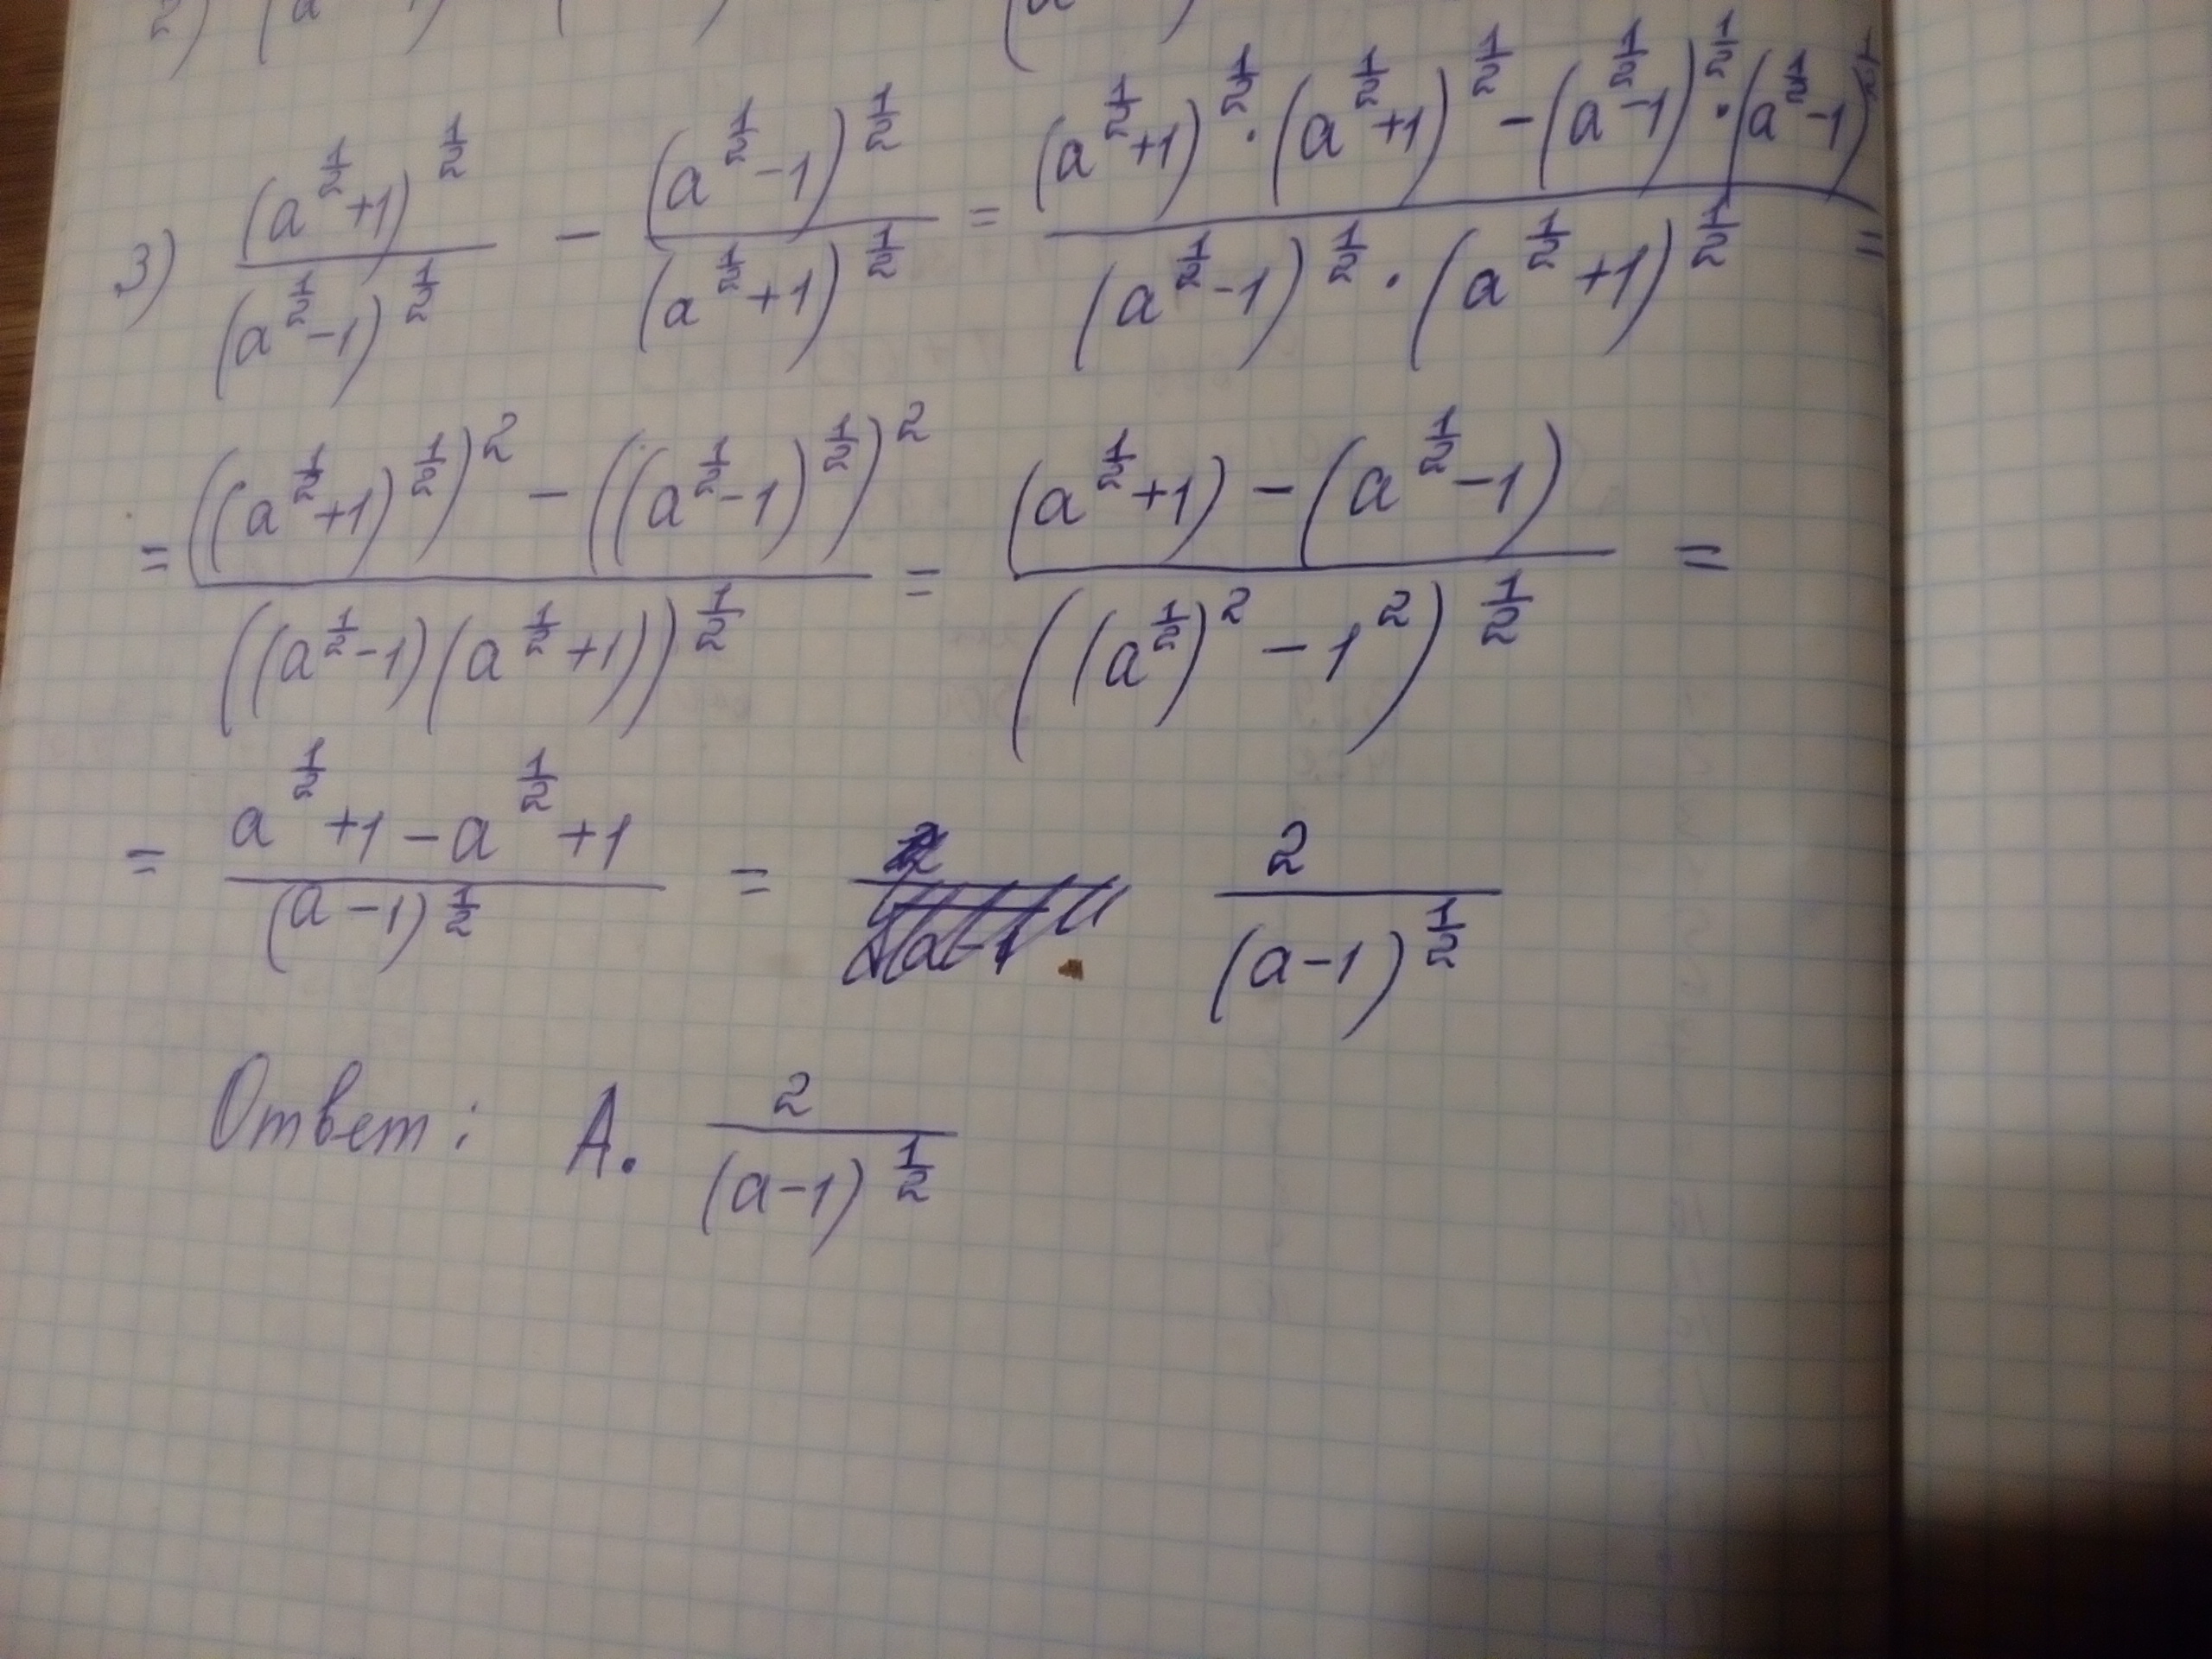 3) (a^(1/2)+1)^(1/2) / (a^(1/2)-1)^(1/2) - (a^(1/2)-1)^(1/2) / (a^(1/2)+1)^(1/2) = ((a^(1/2)+1)^(1/2) · (a^(1/2)+1)^(1/2) - (a^(1/2)-1)^(1/2) · (a^(1/2)-1)^(1/2)) / ((a^(1/2)-1)^(1/2) · (a^(1/2)+1)^(1/2)) =
= (((a^(1/2)+1)^(1/2))^2 - ((a^(1/2)-1)^(1/2))^2) / ((a^(1/2)-1)(a^(1/2)+1))^(1/2) = ((a^(1/2)+1) - (a^(1/2)-1)) / ((a^(1/2))^2 - 1^2)^(1/2) =
= (a^(1/2)+1-a^(1/2)+1) / (a-1)^(1/2) = 2 / (a-1)^(1/2)
Ответ: А. 2 / (a-1)^(1/2)